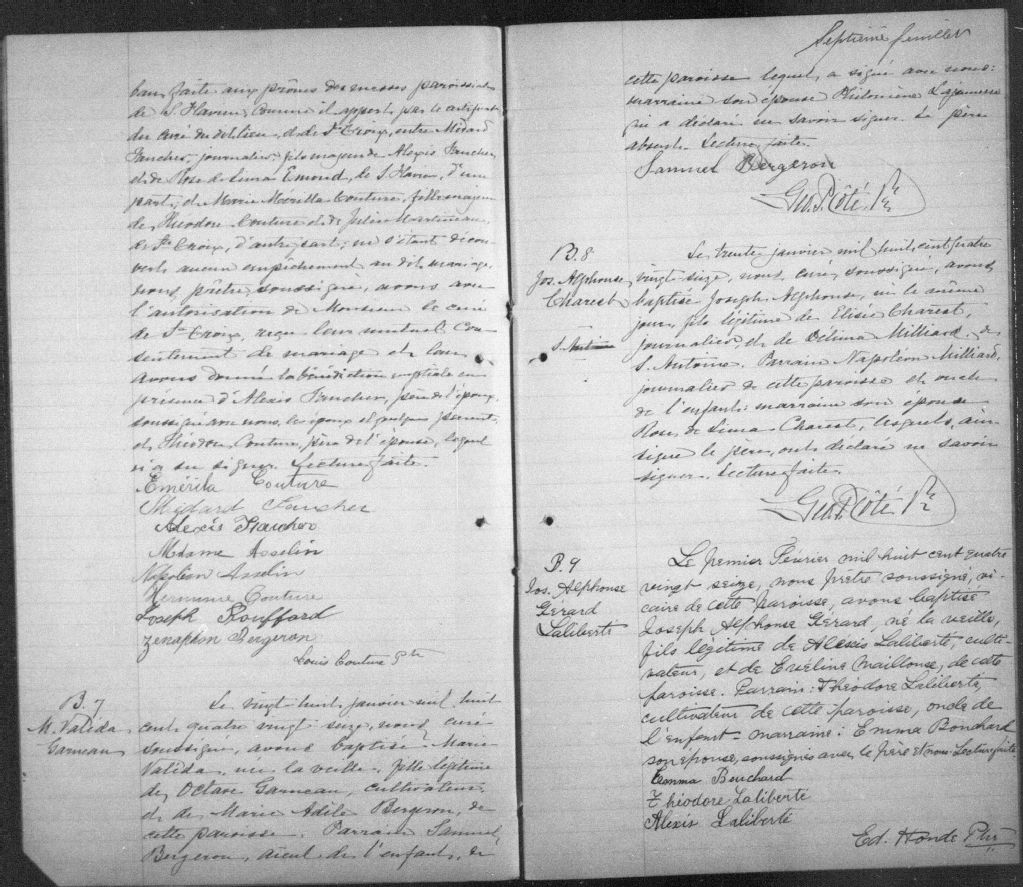 bans faite aux prônes des messes paroissiales
de S. Flavien, comme il appert par le certificat
du curé du dit lieu, et de Ste Croix, entre Médard
Faucher, journalier, fils majeur de Alexis Faucher
et de Rose de Lima Emond, de S. Flavien, d'une
part; et Marie Couture, fille majeure
de Théodore Couture et de Julie Martineau,
de Ste Croix, d'autre part; ne s'étant décou-
vert aucun empêchement au dit mariage,
nous prêtre soussigné, avons avec
l'autorisation de Monsieur le curé
de Ste Croix, reçu leur mutuel con-
sentement de mariage et leur
avons donné la bénédiction nuptiale en
présence d'Alexis Faucher, père de l'époux,
soussigné avec nous, les époux et quelques parents,
et Théodore Couture, père de l'épouse, lequel
n'a su signer. Lecture faite.
Emérila Couture
Médard Faucher
Alexis Faucher
Mdame Asselin
Napoléon Asselin
Hermine Couture
Joseph Rouffard
Zenophon Bergeron
Louis Couture Ptre
B. 7
M. Valida
Garneau
Le vingt huit janvier mil huit
cent quatre vingt seize, nous, curé
soussigné, avons baptisé Marie
Valida, née la veille, fille légitime
de Octave Garneau, cultivateur,
et de Marie Adèle Bergeron, de
cette paroisse. Parrain Samuel
Bergeron, aieul de l'enfant, de
Septième feuillet
cette paroisse lequel a signé avec nous:
marraine son épouse Philomène
qui a déclaré ne savoir signer. Le père
absent. Lecture faite.
Samuel Bergeron
Geo. P. Côté Ptr
B. 8
Jos. Alphonse
Charest
S. Antoine
Le trente janvier mil huit cent quatre
vingt-seize, nous, curé soussigné, avons
baptisé Joseph Alphonse, né le même
jour, fils légitime de Elisée Charest,
journalier, et de Délima Milliard, de
S. Antoine. Parrain Napoléon Milliard,
journalier de cette paroisse et oncle
de l'enfant: marraine son épouse
Rose de Lima Charest, lesquels, ain-
si que le père, ont déclaré ne savoir
signer. Lecture faite.
Geo. P. Côté Ptr
B. 9
Jos. Alphonse
Gérard
Laliberté
Le premier Février mil huit cent quatre
vingt seize, nous prêtre soussigné, vi-
caire de cette paroisse, avons baptisé
Joseph Alphonse Gérard, né la veille,
fils légitime de Alexis Laliberté, culti-
vateur, et de Eveline Mailloux, de cette
paroisse. Parrain: Théodore Laliberté,
cultivateur de cette paroisse, oncle de
l'enfant - marraine: Emma Bouchard
son épouse, soussignés avec le père et nous. Lecture faite.
Emma Bouchard
Théodore Laliberté
Alexis Laliberté
Ed. Honde Ptre